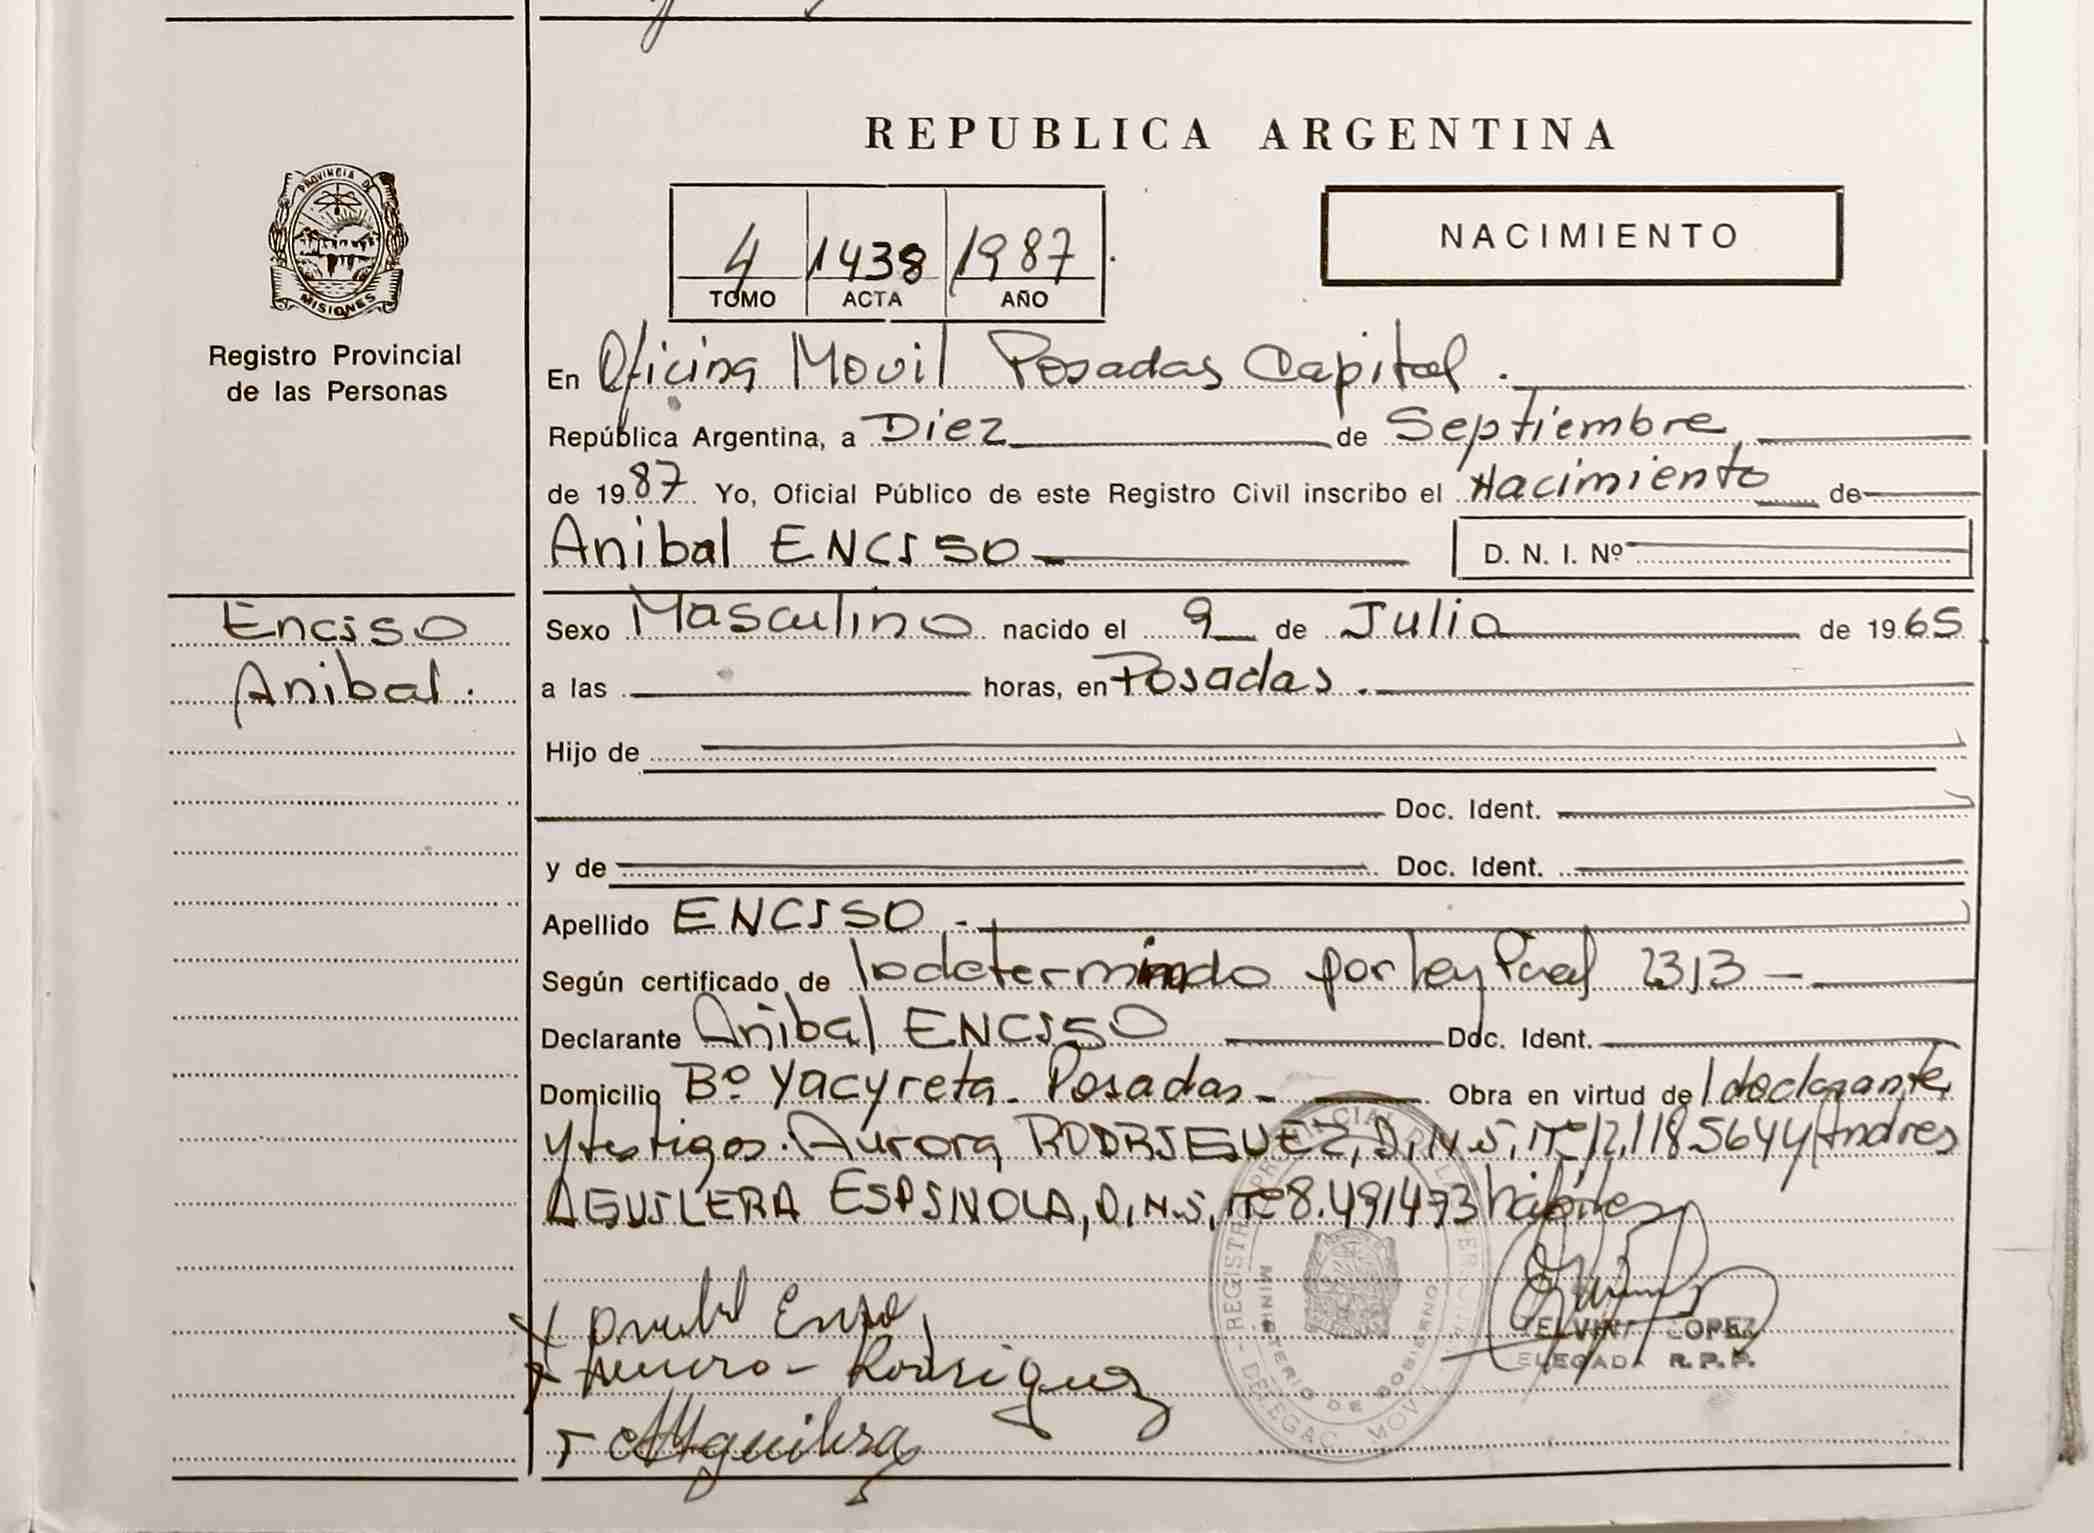 REPUBLICA ARGENTINA
PROVINCIA DE
MISIONES
Registro Provincial
de las Personas
4 1438 1987
TOMO ACTA AÑO
NACIMIENTO
En Oficina Movil Posadas Capital.
República Argentina, a Diez de Septiembre
de 1987 Yo, Oficial Público de este Registro Civil inscribo el Nacimiento de
Anibal ENCISO D. N. I. Nº
Enciso
Anibal.
Sexo Masculino nacido el 9 de Julio de 1965
a las horas, en Posadas.
Hijo de
Doc. Ident.
y de Doc. Ident.
Apellido ENCISO.-
Según certificado de Indeterminado por Ley Pcial 2313-
Declarante Anibal ENCISO Doc. Ident.
Domicilio Bº Yacyreta- Posadas- Obra en virtud de l declarante
y testigos. Aurora RODRIGUEZ, D.N.I, Nº 12.118564 y Andres
AGUILERA ESPINOLA, D.N.I, Nº 8.491473 habiles
Rodriguez
Aguilera
LOPEZ
DELEGADA R.P.P.
MINISTERIO DE GOBIERNO